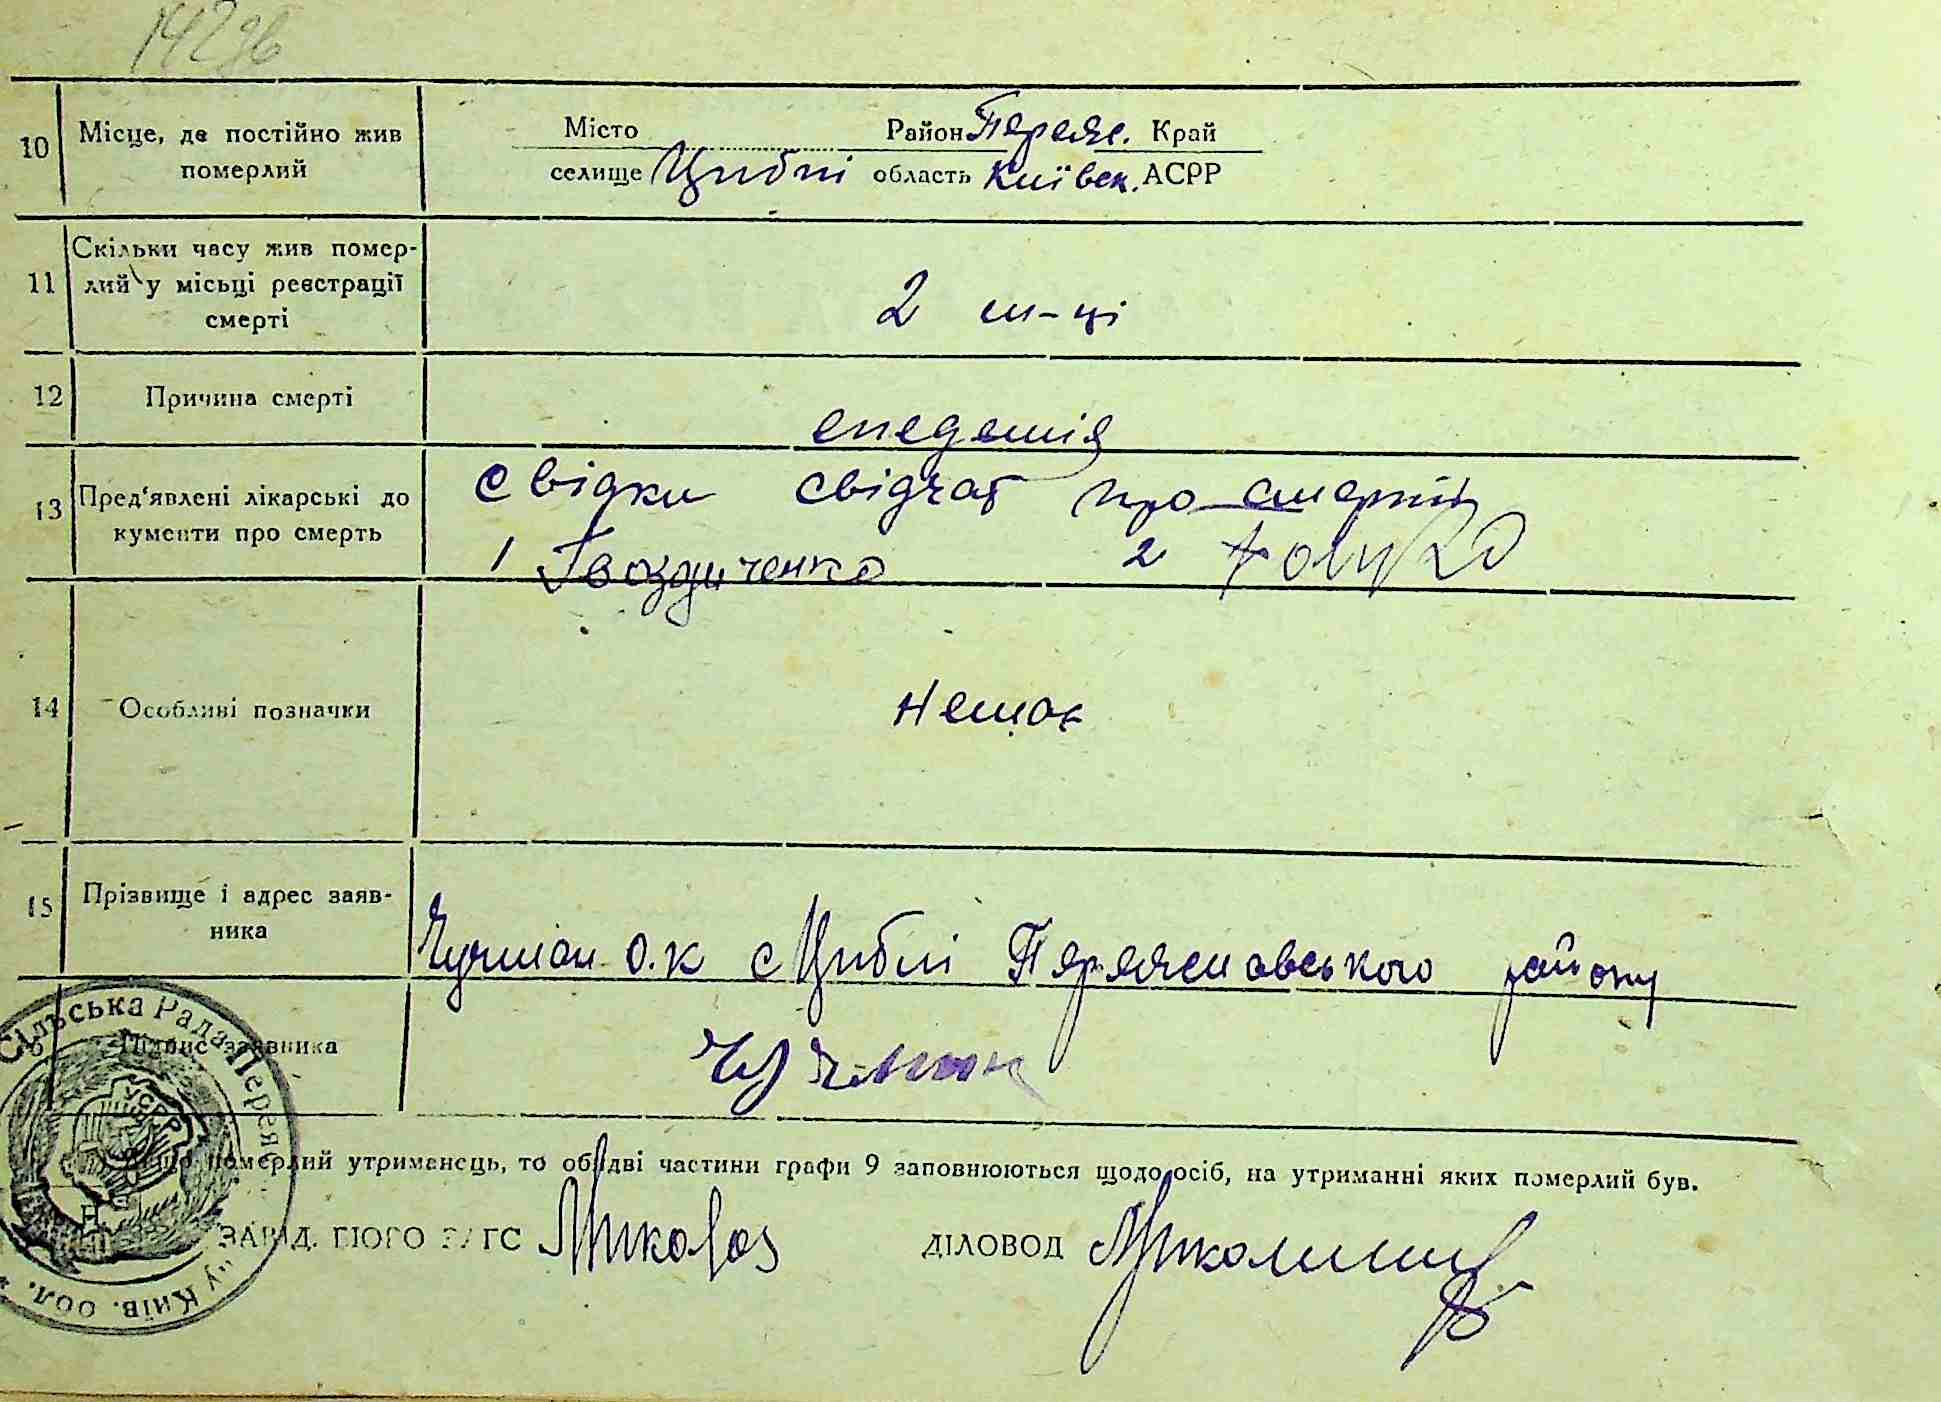 10 Місце, де постійно жив Місто Район Переяс. Край
померлий селище Циблі область Київск. АСРР
Скільки часу жив помер-
11 лий у місьці реєстрації 2 м-ці
смерті
12 Причина смерті епедемія
13 Пред'явлені лікарські до Свідки свідчат про смерть
кументи про смерть 1 Гвоздиченко 2
14 Особливі позначки Немає
15 Прізвище і адрес заяв-
ника О.К с Циблі Переяславського району
Підпис заявника
померлий утриманець, то обидві частини графи 9 заповнюються щодо осіб, на утриманні яких померлий був.
ЗАВІД. ЗАГС ДІЛОВОД
Сільська Рада Переяс
УСРР
Київ. обл.